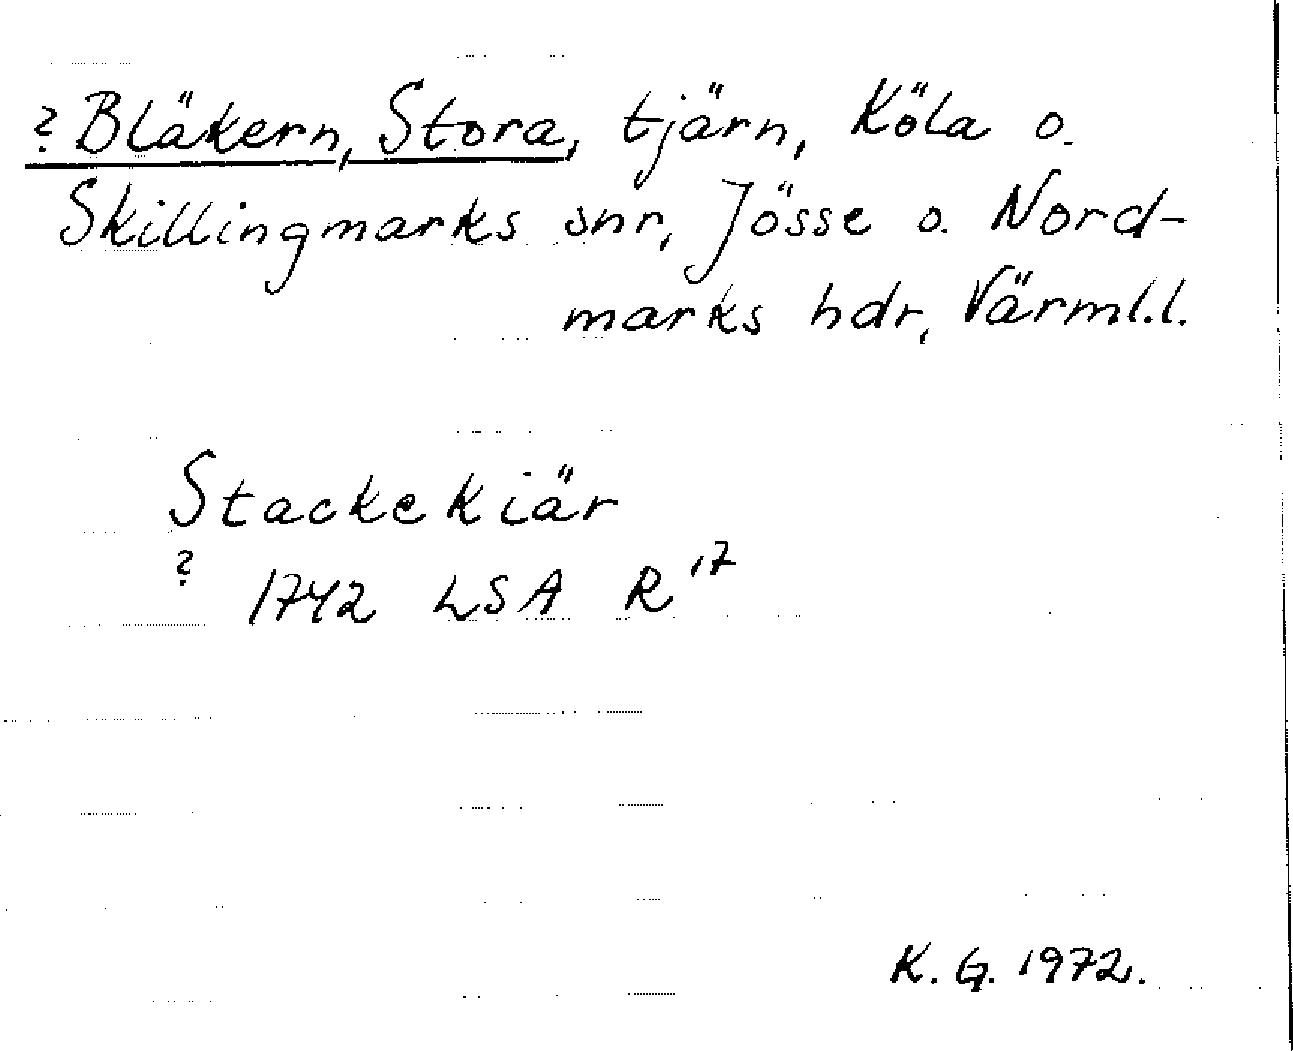 ? Bläkern, Stora, tjärn, Köla o.
Skillingmarks snr, Jösse o. Nord-
marks hdr, Värml.l.
Stackekiär
? 1742 LSA R 17
K. G. 1972.